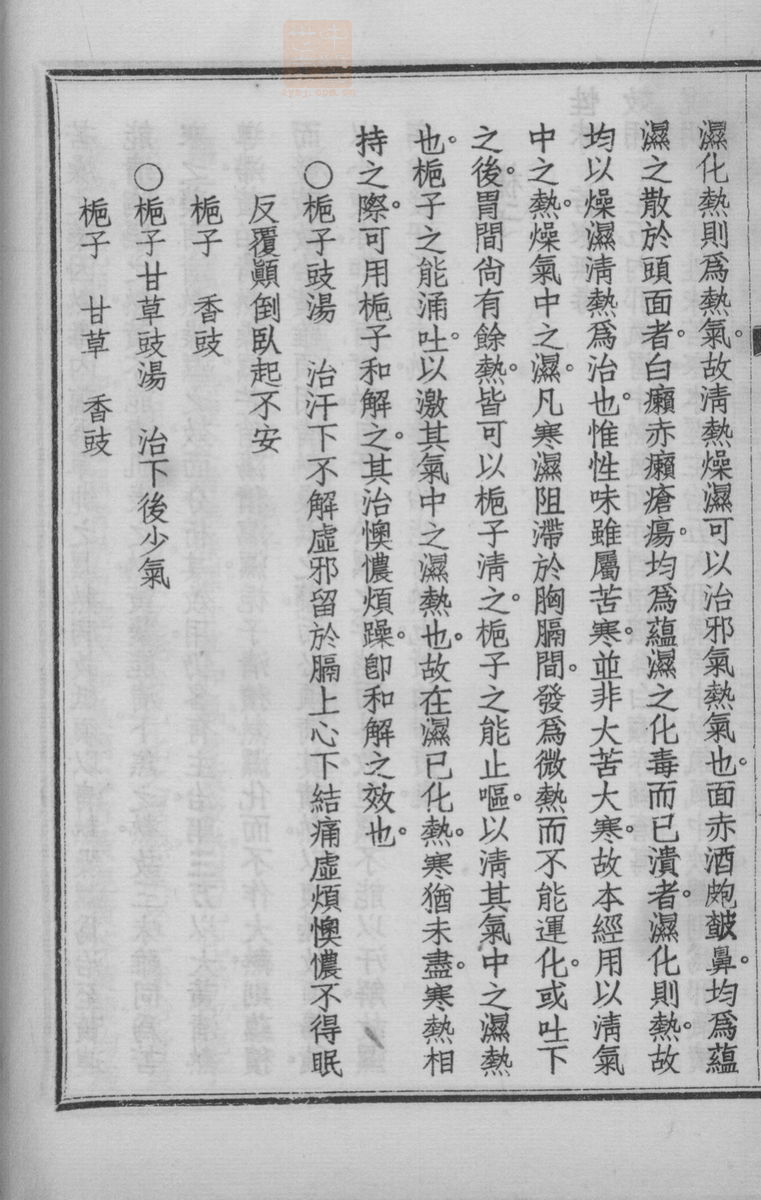 濕化熱則爲熱氣。故淸熱燥濕可以治邪氣熱氣也。面赤酒皰皶鼻。均爲蘊
濕之散於頭面者。白癩赤癩瘡瘍。均爲蘊濕之化毒而已潰者。濕化則熱。故
均以燥濕淸熱爲治也。惟性味雖屬苦寒。並非大苦大寒。故本經用以淸氣
中之熱。燥氣中之濕。凡寒濕阻滯於胸膈間。發爲微熱而不能運化。或吐下
之後。胃間尙有餘熱。皆可以梔子淸之。梔子之能止嘔。以淸其氣中之濕熱
也。梔子之能涌吐。以激其氣中之濕熱也。故在濕已化熱。寒猶未盡。寒熱相
持之際。可用梔子和解之。其治懊憹煩躁。卽和解之效也。
○梔子豉湯　治汗下不解虛邪留於膈上心下結痛虛煩懊憹不得眠
反覆顚倒臥起不安
梔子　香豉
○梔子甘草豉湯　治下後少氣
梔子　甘草　香豉